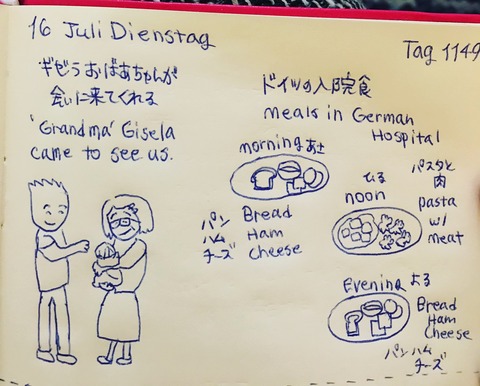 16 Juli Dienstag
Tag 1149
ギゼラおばあちゃんが
会いに来てくれる
'Grandma' Gisela
came to see us.
ドイツの入院食
Meals in German
Hospital
morning あさ
パン Bread
ハム Ham
チーズ Cheese
ひる
noon
パスタと
肉
pasta
w/
meat
Evening よる
Bread
Ham
Cheese
パン ハム
チーズ